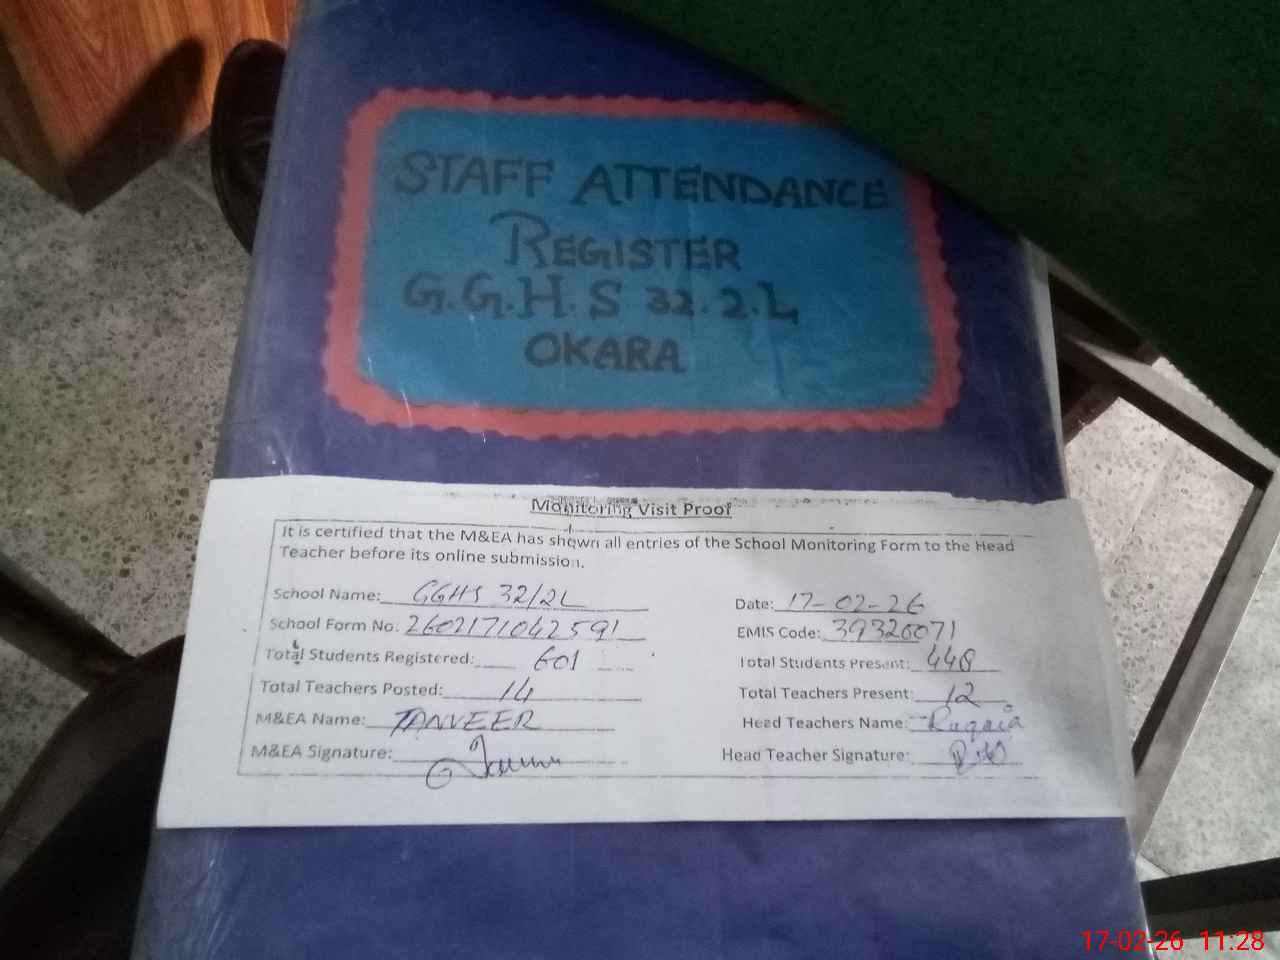 STAFF ATTENDANCE
REGISTER
G.G.H.S 32.2.L
OKARA
Monitoring Visit Proof
It is certified that the M&EA has shown all entries of the School Monitoring Form to the Head
Teacher before its online submission.
School Name: GGHS 32/2L Date: 17-02-26
School Form No. 2602171042591 EMIS Code: 39320071
Total Students Registered: 601 Total Students Present: 448
Total Teachers Posted: 14 Total Teachers Present: 12
M&EA Name: TANVEER Head Teachers Name: Ruqaia
M&EA Signature: Head Teacher Signature:
17-02-26 11:28